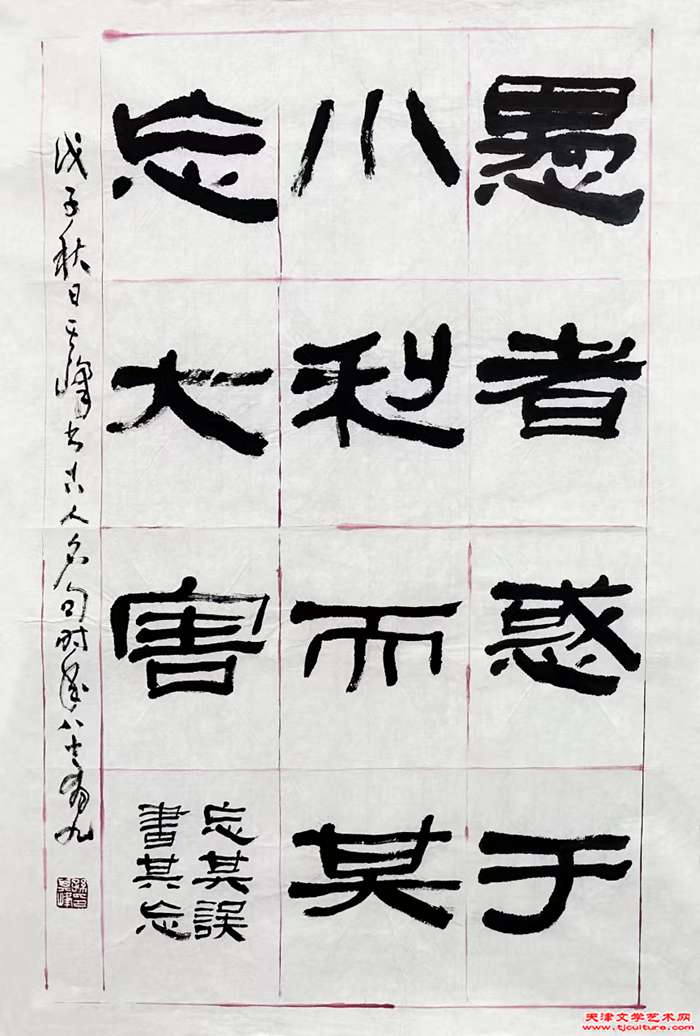 愚者惑于
小利而其
忘大害
忘其誤
書其忘
戊子秋日其峰书古人名句时年八十有九
孫印其峰
天津文学艺术网
www.tjculture.com